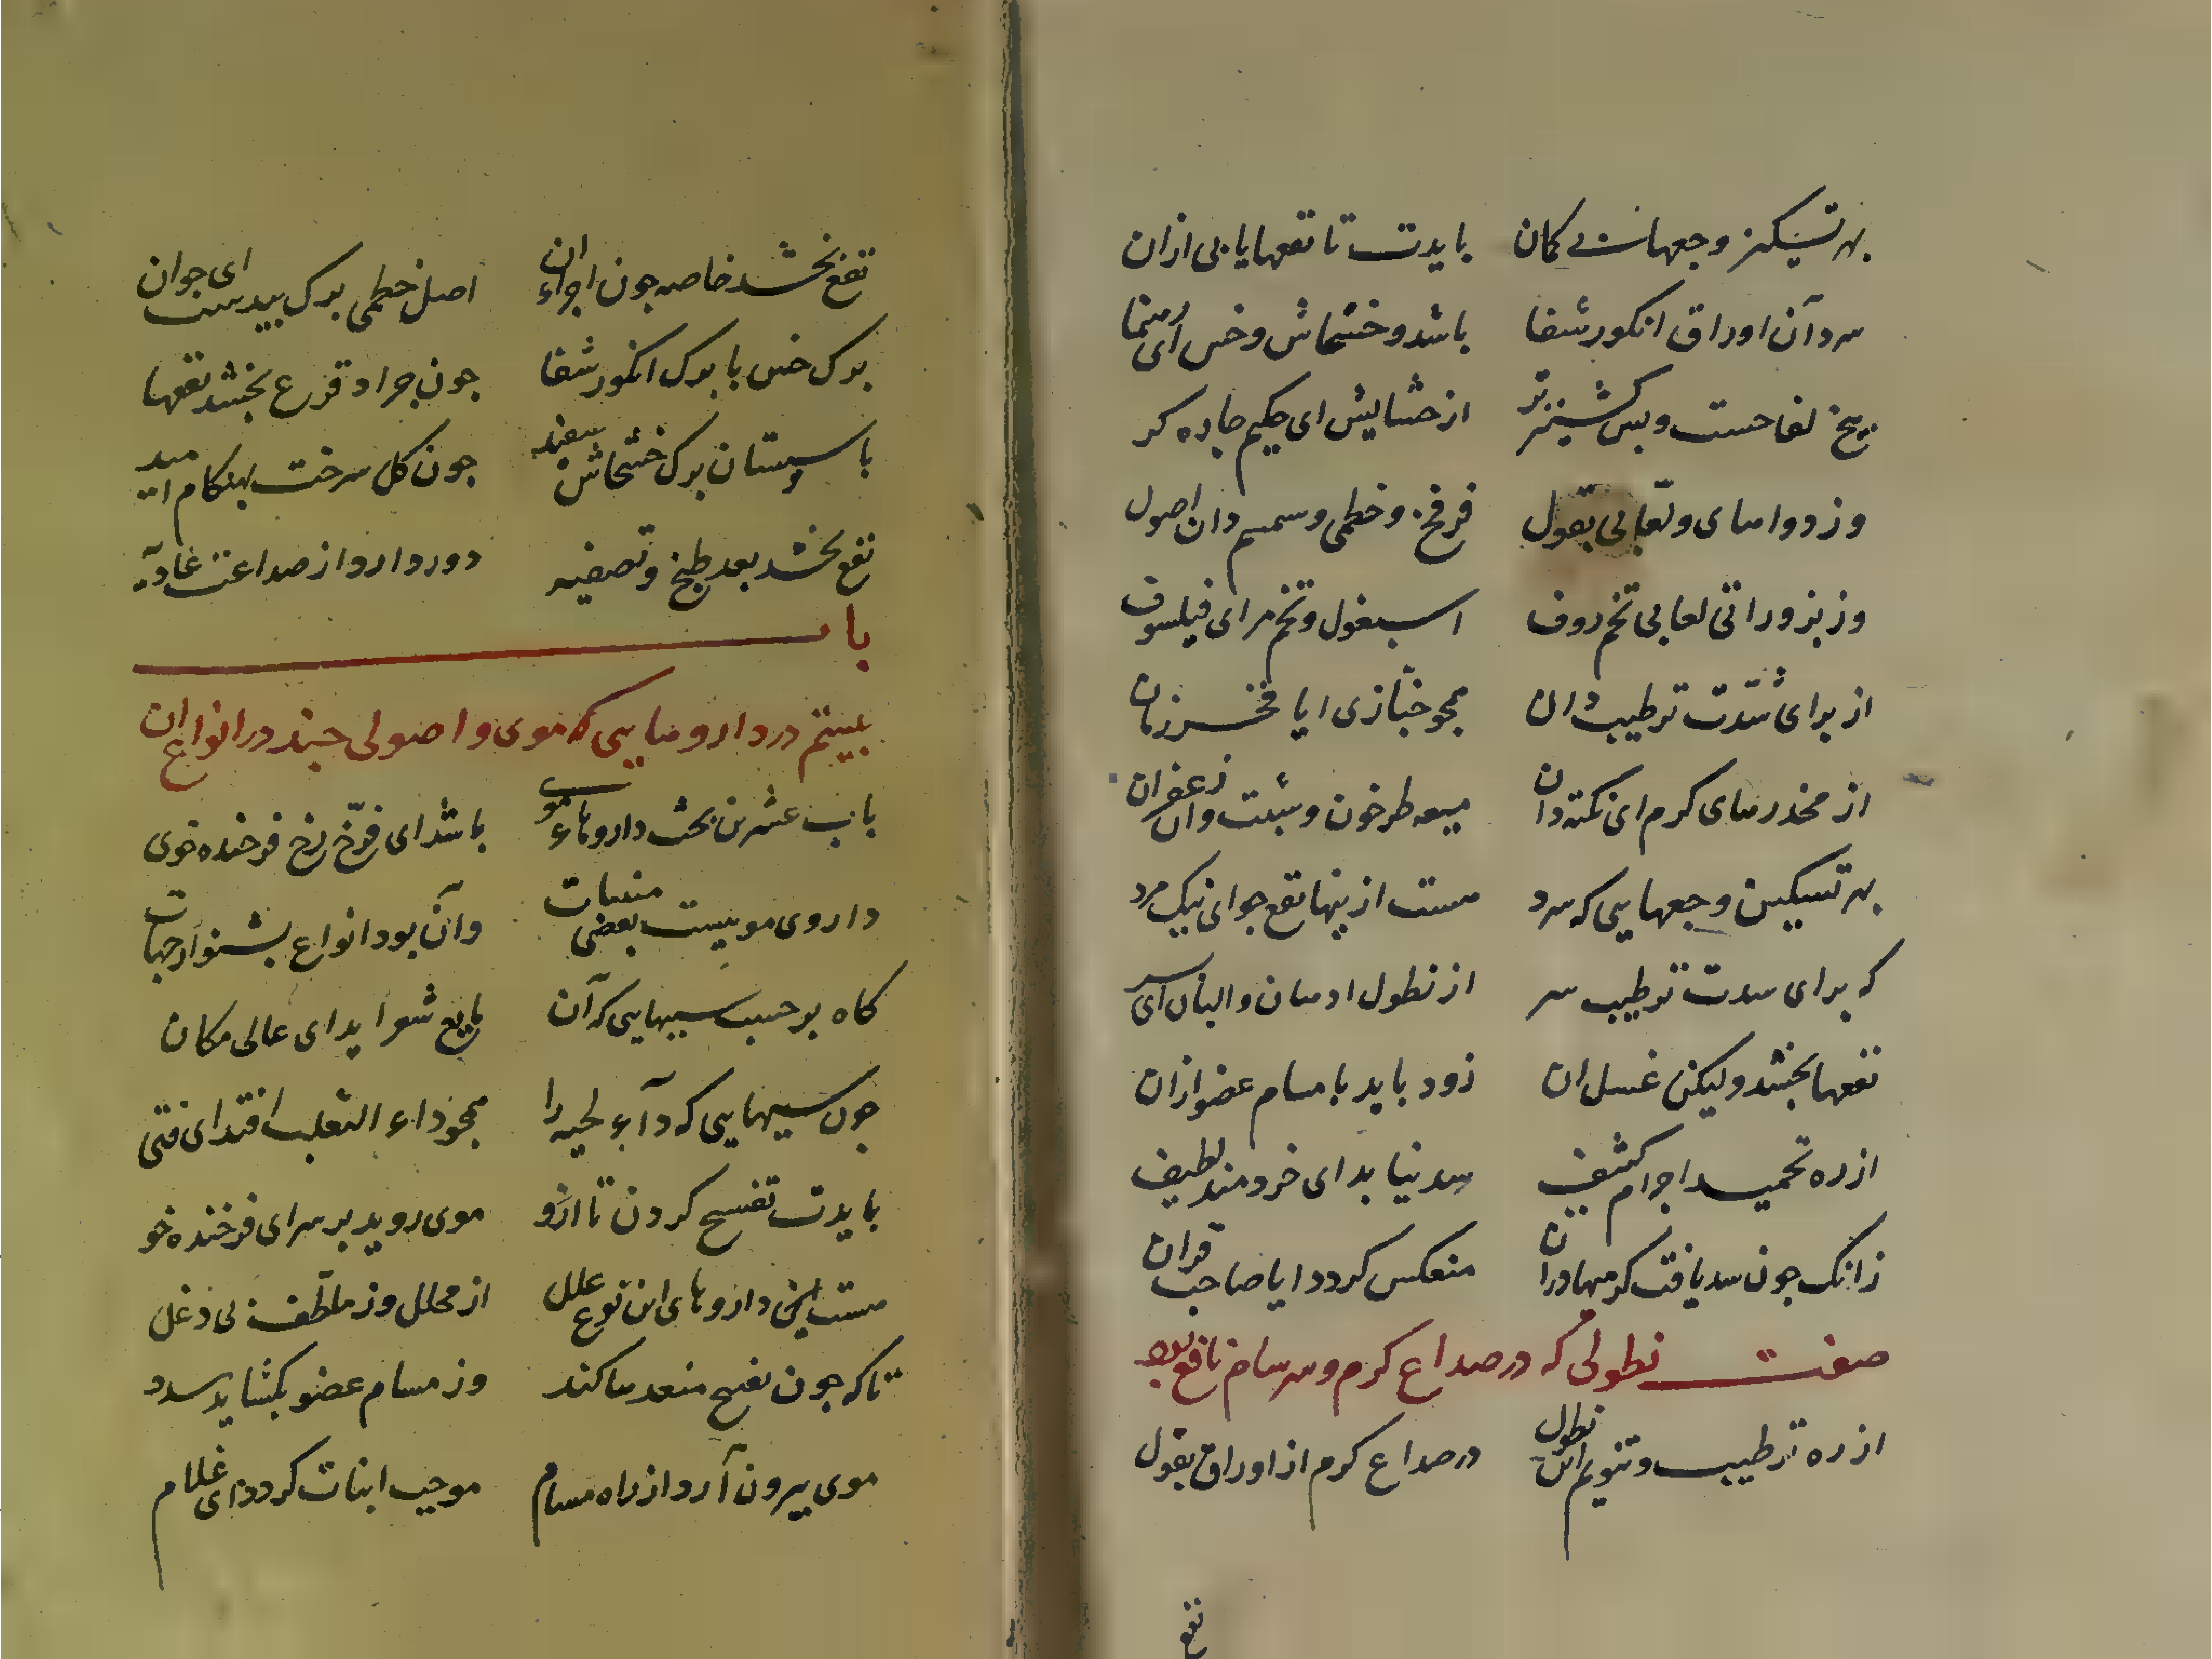 بهر تسکین وجعهات بی کمان بایدت تا نفعها یابی ازان
سرد آن اوراق انکور شفا باشد و خشخاش و خس ای رهنما
بیخ لفاحست و پس کشنیز تر از حشایش ای حکیم چاره کر
وز دواهای و لعابی بقول فرفخ و خطمی و سمسم دان اصول
وز بزوراتی لعابی تخم روف اسبغول و تخم مر ای فیلسوف
از برای شدت ترطیب دان همچو خبازی ایا فخر زمان
از مخدرهای کرم ای نکته دان میعه طرخون و شبت وان زعفران
بهر تسکین وجعهایی که سرد هست ازینها نفع جو ای نیک مرد
که برای شدت ترطیب سر از نطول ادهان و البان ای
نفعها بخشد ولیکن غسل ان زود باید با مسام عضو ازان
از ره تحمید اجرام کثیف سد نیابد ای خردمند لطیف
زانک چون سد یافت کرمیها دران منعکس کردد ایا صاحب قران
صفت نطولی که در صداع کرم و سرسام نافع بود
از ره ترطیب و تنویم این نطول در صداع کرم از اوراق بقول
نفع
نفع بخشد خاصه چون اجزاء ان اصل خطمی برک بیدست ای جوان
برک خس با برک انکور شفا چون جراد قرع بخشد نفعها
با سپستان برک خشخاش سفید چون کل سرخت بهنکام امید
نفع بخشد بعد طبخ و تصفیه دور دارد از صداعت غادیه
باب
بیستم در داروهایی که موی و اصولی چند در انواع ان
باب عشرین بحث داروهاء موی باشد ای فرخ رخ فرخنده خوی
داروی مو بیست بعضی منبتات وآن بود انواع بشنو از جهات
کاه بر حسب سببهایی که آن مانع شعر اید ای عالی مکان
چون سببهایی که دآء لحیه را همچو داء الثعلب افتد ای فتی
بایدت تفسیح کردن تا ازو موی روید بر سر ای فرخنده خو
هست این داروهای این نوع علل از محلل وز ملطف بی دغل
تا که چون تفتیح منفدها کند وز مسام عضو بکشاید سدد
موی بیرون آرد از راه مسام موجب انبات کردد ای غلام